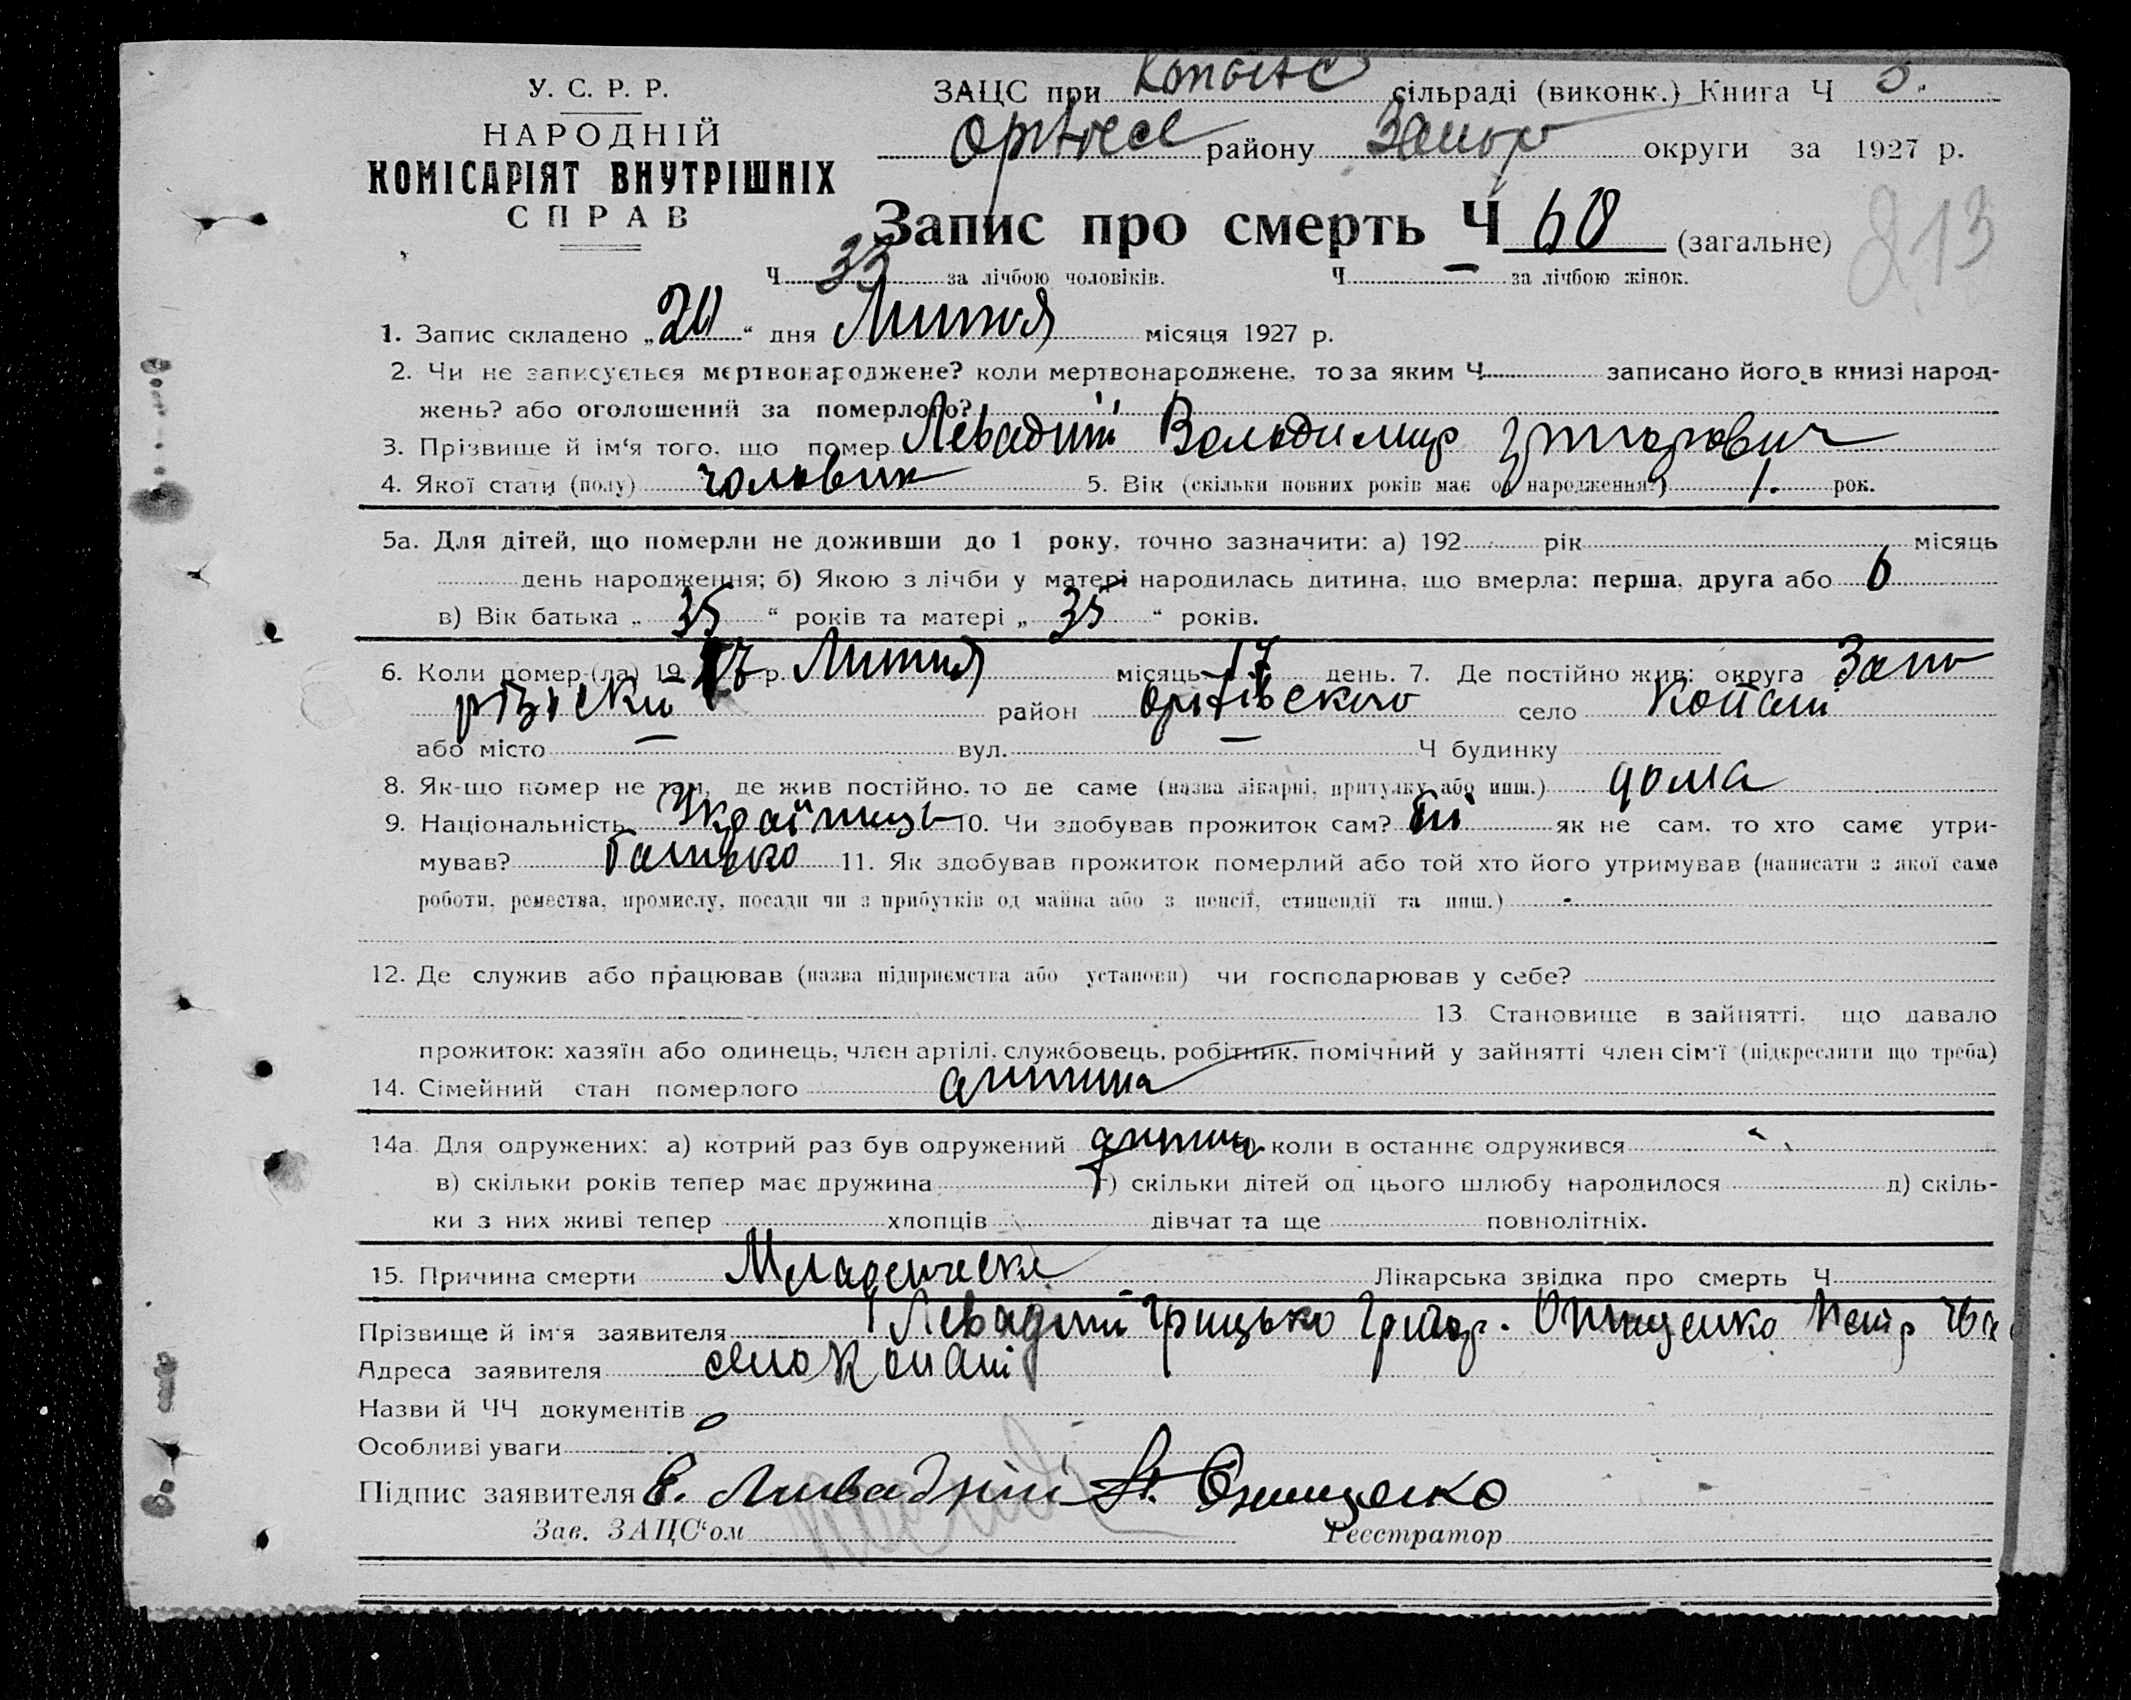 У. С. Р. Р.
НАРОДНІЙ
КОМІСАРІЯТ ВНУТРІШНІХ
СПРАВ
ЗАЦС при сільраді (виконк.) Книга Ч
району Запор округи за 1927 р.
Запис про смерть Ч 60 (загальне)
213
Ч 33 за лічбою чоловіків. Ч — за лічбою жінок.
1. Запис складено „20“ дня місяця 1927 р.
2. Чи не записується мертвонароджене? коли мертвонароджене, то за яким Ч записано його в книзі народ-
жень? або оголошений за померлого?
3. Прізвище й ім‘я того, що помер Левадній Володимир Григорович
4. Якої стати (полу) чоловик 5. Вік (скільки повних років має од народження?) 1. рок.
5а. Для дітей, що померли не доживши до 1 року, точно зазначити: а) 192 рік місяць
день народження; б) Якою з лічби у матері народилась дитина, що вмерла: перша, друга або 6
в) Вік батька „35“ років та матері „35“ років.
6. Коли помер-(ла) 19 27 р. місяць 17 день. 7. Де постійно жив: округа Запо
різький район оріхівского село Копані
або місто — вул. — Ч будинку
8. Як-що помер не там, де жив постійно, то де саме (назва лікарні, притулку або инш.) дома
9. Національність Українець 10. Чи здобував прожиток сам? ні як не сам, то хто саме утри-
мував? батько 11. Як здобував прожиток померлий або той хто його утримував (написати з якої саме
роботи, ремества, промислу, посади чи з прибутків од майна або з пенсії, стипендії та инш.)
12. Де служив або працював (назва підприємства або установи) чи господарював у себе?
13. Становище в зайнятті, що давало
прожиток: хазяїн або одинець, член артілі, службовець, робітник, помічний у зайнятті член сім‘ї (підкреслити що треба)
14. Сімейний стан померлого дитина
14а. Для одружених: а) котрий раз був одружений дитина коли в останнє одружився
в) скільки років тепер має дружина г) скільки дітей од цього шлюбу народилося д) скіль-
ки з них живі тепер хлопців дівчат та ще повнолітніх.
15. Причина смерти Младеческе Лікарська звідка про смерть Ч
Прізвище й ім‘я заявителя Левадній Грицько Григор. Онищенко Петр
Адреса заявителя село Копані
Назви й ЧЧ документів
Особливі уваги
Підпис заявителя Ливадній Онищенко
Зав. ЗАЦС‘ом Реєстратор